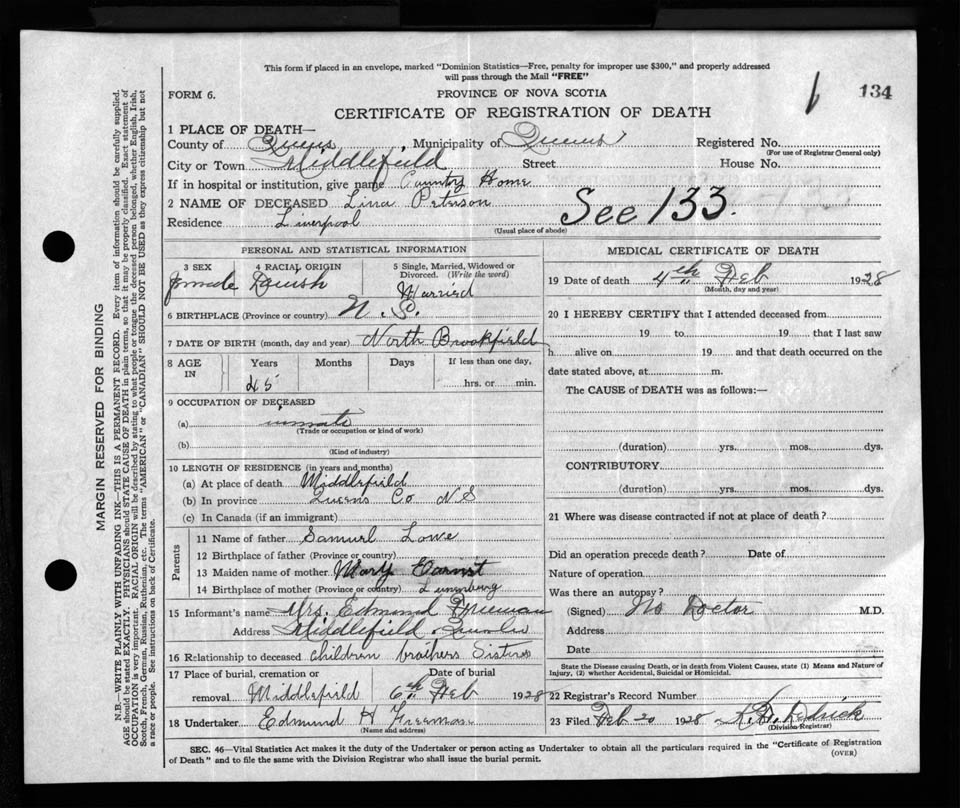 This form if placed in an envelope, marked "Dominion Statistics—Free, penalty for improper use $300," and properly addressed
will pass through the Mail "FREE"
FORM 6.
PROVINCE OF NOVA SCOTIA
134
CERTIFICATE OF REGISTRATION OF DEATH
1 PLACE OF DEATH—
County of Queens, Municipality of Queens Registered No.
(For use of Registrar General only)
City or Town Middlefield Street House No.
If in hospital or institution, give name County Home
2 NAME OF DECEASED Lina Peterson
See 133.
Residence Liverpool
(Usual place of abode)
PERSONAL AND STATISTICAL INFORMATION
3 SEX 4 RACIAL ORIGIN 5 Single, Married, Widowed or
Divorced. (Write the word)
Married
6 BIRTHPLACE (Province or country) N. S.
7 DATE OF BIRTH (month, day and year) North Brookfield
8 AGE Years Months Days If less than one day,
IN 45 hrs. or min.
9 OCCUPATION OF DECEASED
(a) inmate
(Trade or occupation or kind of work)
(b)
(Kind of industry)
10 LENGTH OF RESIDENCE (in years and months)
(a) At place of death Middlefield
(b) In province Queens Co N S
(c) In Canada (if an immigrant)
Parents
11 Name of father Samuel Lowe
12 Birthplace of father (Province or country)
13 Maiden name of mother Mary
14 Birthplace of mother (Province or country) Lunenburg
15 Informant's name Mrs. Edmund Freeman
Address Middlefield
16 Relationship to deceased children brothers Sisters
17 Place of burial, cremation or Date of burial
removal Middlefield 6th Feb 1928
18 Undertaker Edmund H Freeman
(Name and address)
MEDICAL CERTIFICATE OF DEATH
19 Date of death 4th Feb 1928
(Month, day and year)
20 I HEREBY CERTIFY that I attended deceased from
19 to 19 that I last saw
h alive on 19 and that death occurred on the
date stated above, at m.
The CAUSE of DEATH was as follows:—
(duration) yrs. mos. dys.
CONTRIBUTORY
(duration) yrs. mos. dys.
21 Where was disease contracted if not at place of death?
Did an operation precede death? Date of
Nature of operation
Was there an autopsy?
(Signed) No Doctor M.D.
Address
Date
State the Disease causing Death, or in death from Violent Causes, state (1) Means and Nature of
Injury, (2) whether Accidental, Suicidal or Homicidal.
22 Registrar's Record Number
23 Filed Feb 20 1928
(Division Registrar)
SEC. 46—Vital Statistics Act makes it the duty of the Undertaker or person acting as Undertaker to obtain all the particulars required in the "Certificate of Registration
of Death" and to file the same with the Division Registrar who shall issue the burial permit.
(OVER)
MARGIN RESERVED FOR BINDING
N.B.—WRITE PLAINLY WITH UNFADING INK—THIS IS A PERMANENT RECORD. Every item of information should be carefully supplied.
AGE should be stated EXACTLY. PHYSICIANS should STATE CAUSE OF DEATH in plain terms, so that it may be properly classified. Exact statement of
OCCUPATION is very important. RACIAL ORIGIN will be described by stating to what people or tongue the deceased person belonged, whether English, Irish,
Scotch, French, German, Russian, Ruthenian, etc. The terms "AMERICAN" or "CANADIAN" SHOULD NOT BE USED as they express citizenship but not
a race or people. See instructions on back of Certificate.